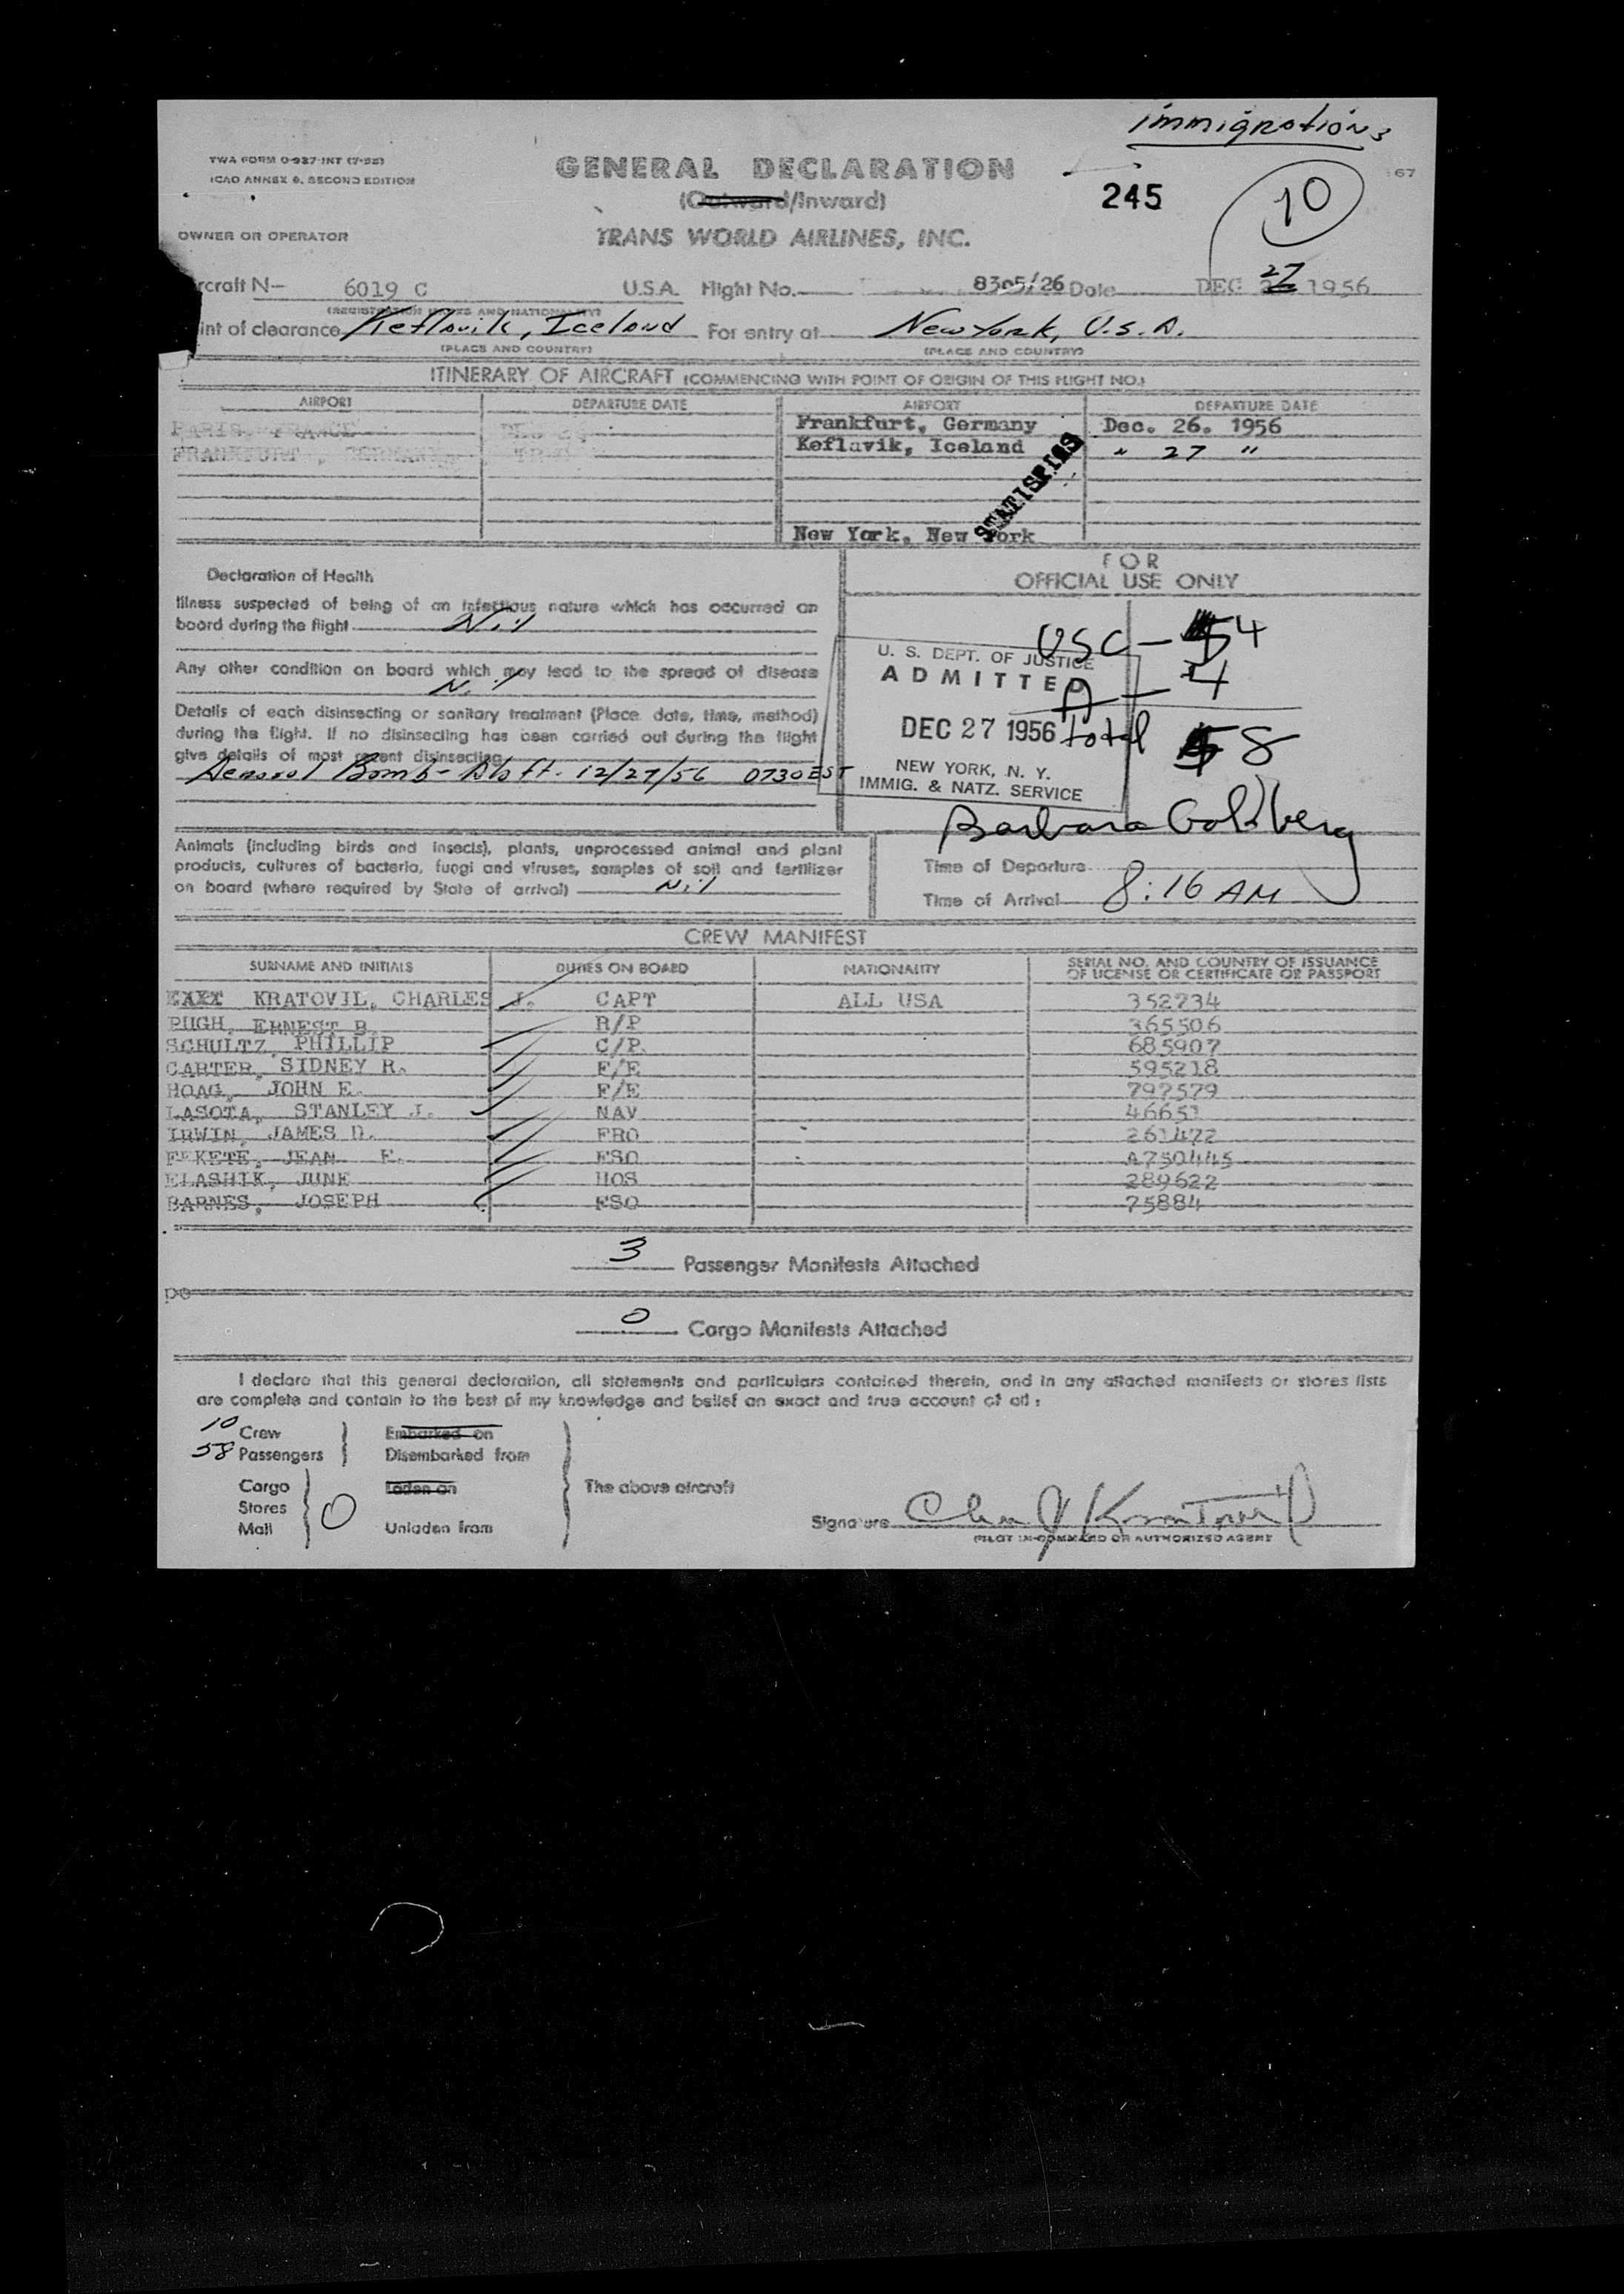 immigrations
TWA FORM O-927-INT (7-55)
ICAO ANNEX 9, SECOND EDITION
GENERAL DECLARATION
245
10
67
(Outward/Inward)
OWNER OR OPERATOR
TRANS WORLD AIRLINES, INC.
rcraft N- 6019 C U.S.A. Flight No. 8305/26 Date DEC 27 1956
(REGISTRATION MARKS AND NATIONALITY)
int of clearance Keflavik, Iceland For entry at New York, U.S.A.
(PLACE AND COUNTRY) (PLACE AND COUNTRY)
ITINERARY OF AIRCRAFT (COMMENCING WITH POINT OF ORIGIN OF THIS FLIGHT NO.)
AIRPORT DEPARTURE DATE AIRPORT DEPARTURE DATE
PARIS, FRANCE DEC Frankfurt, Germany Dec. 26, 1956
FRANKFURT, GERMANY Keflavik, Iceland " 27 "
STATISTICS
New York, New York
Declaration of Health
FOR
OFFICIAL USE ONLY
Illness suspected of being of an infectious nature which has occurred on
board during the flight Nil
Any other condition on board which may lead to the spread of disease
Nil
Details of each disinsecting or sanitary treatment (Place, date, time, method)
during the flight. If no disinsecting has been carried out during the flight
give details of most recent disinsecting
Aerosol Bomb - Aloft. 12/27/56 0730 EST
USC - 54
A - 4
total 58
U. S. DEPT. OF JUSTICE
ADMITTED
DEC 27 1956
NEW YORK, N. Y.
IMMIG. & NATZ. SERVICE
Barbara Goldberg
Animals (including birds and insects), plants, unprocessed animal and plant
products, cultures of bacteria, fungi and viruses, samples of soil and fertilizer
on board (where required by State of arrival) Nil
Time of Departure
Time of Arrival 8:16 AM
CREW MANIFEST
SURNAME AND INITIALS DUTIES ON BOARD NATIONALITY SERIAL NO. AND COUNTRY OF ISSUANCE
OF LICENSE OR CERTIFICATE OR PASSPORT
KRATOVIL, CHARLES J. CAPT ALL USA 352734
PUGH, ERNEST B. R/P 365506
SCHULTZ, PHILLIP C/P 685907
CARTER, SIDNEY R. F/E 595218
HOAG, JOHN E. F/E 797579
LASOTA, STANLEY J. NAV 46651
IRWIN, JAMES D. FRO 261472
FEKETE, JEAN F. FSO A750445
ELASHIK, JUNE HOS 289622
BARNES, JOSEPH FSO 75884
3 Passenger Manifests Attached
po
0 Cargo Manifests Attached
I declare that this general declaration, all statements and particulars contained therein, and in any attached manifests or stores lists
are complete and contain to the best of my knowledge and belief an exact and true account of all:
10 Crew Embarked on
58 Passengers Disembarked from
Cargo Laden on The above aircraft
Stores 0
Mail Unladen from
Signature Chas J Kratovil
PILOT IN COMMAND OR AUTHORIZED AGENT